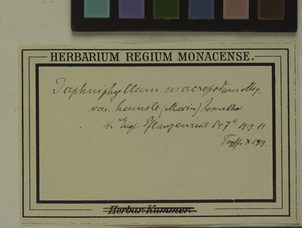 HERBARIUM REGIUM MONACENSE.
Daphniphyllum macropodum Miq.
var. humile (Maxim) Rosenthal
in Engl. Pflanzenreich 147a 1919. 11
X. 1919.
Herbar. Kummer.